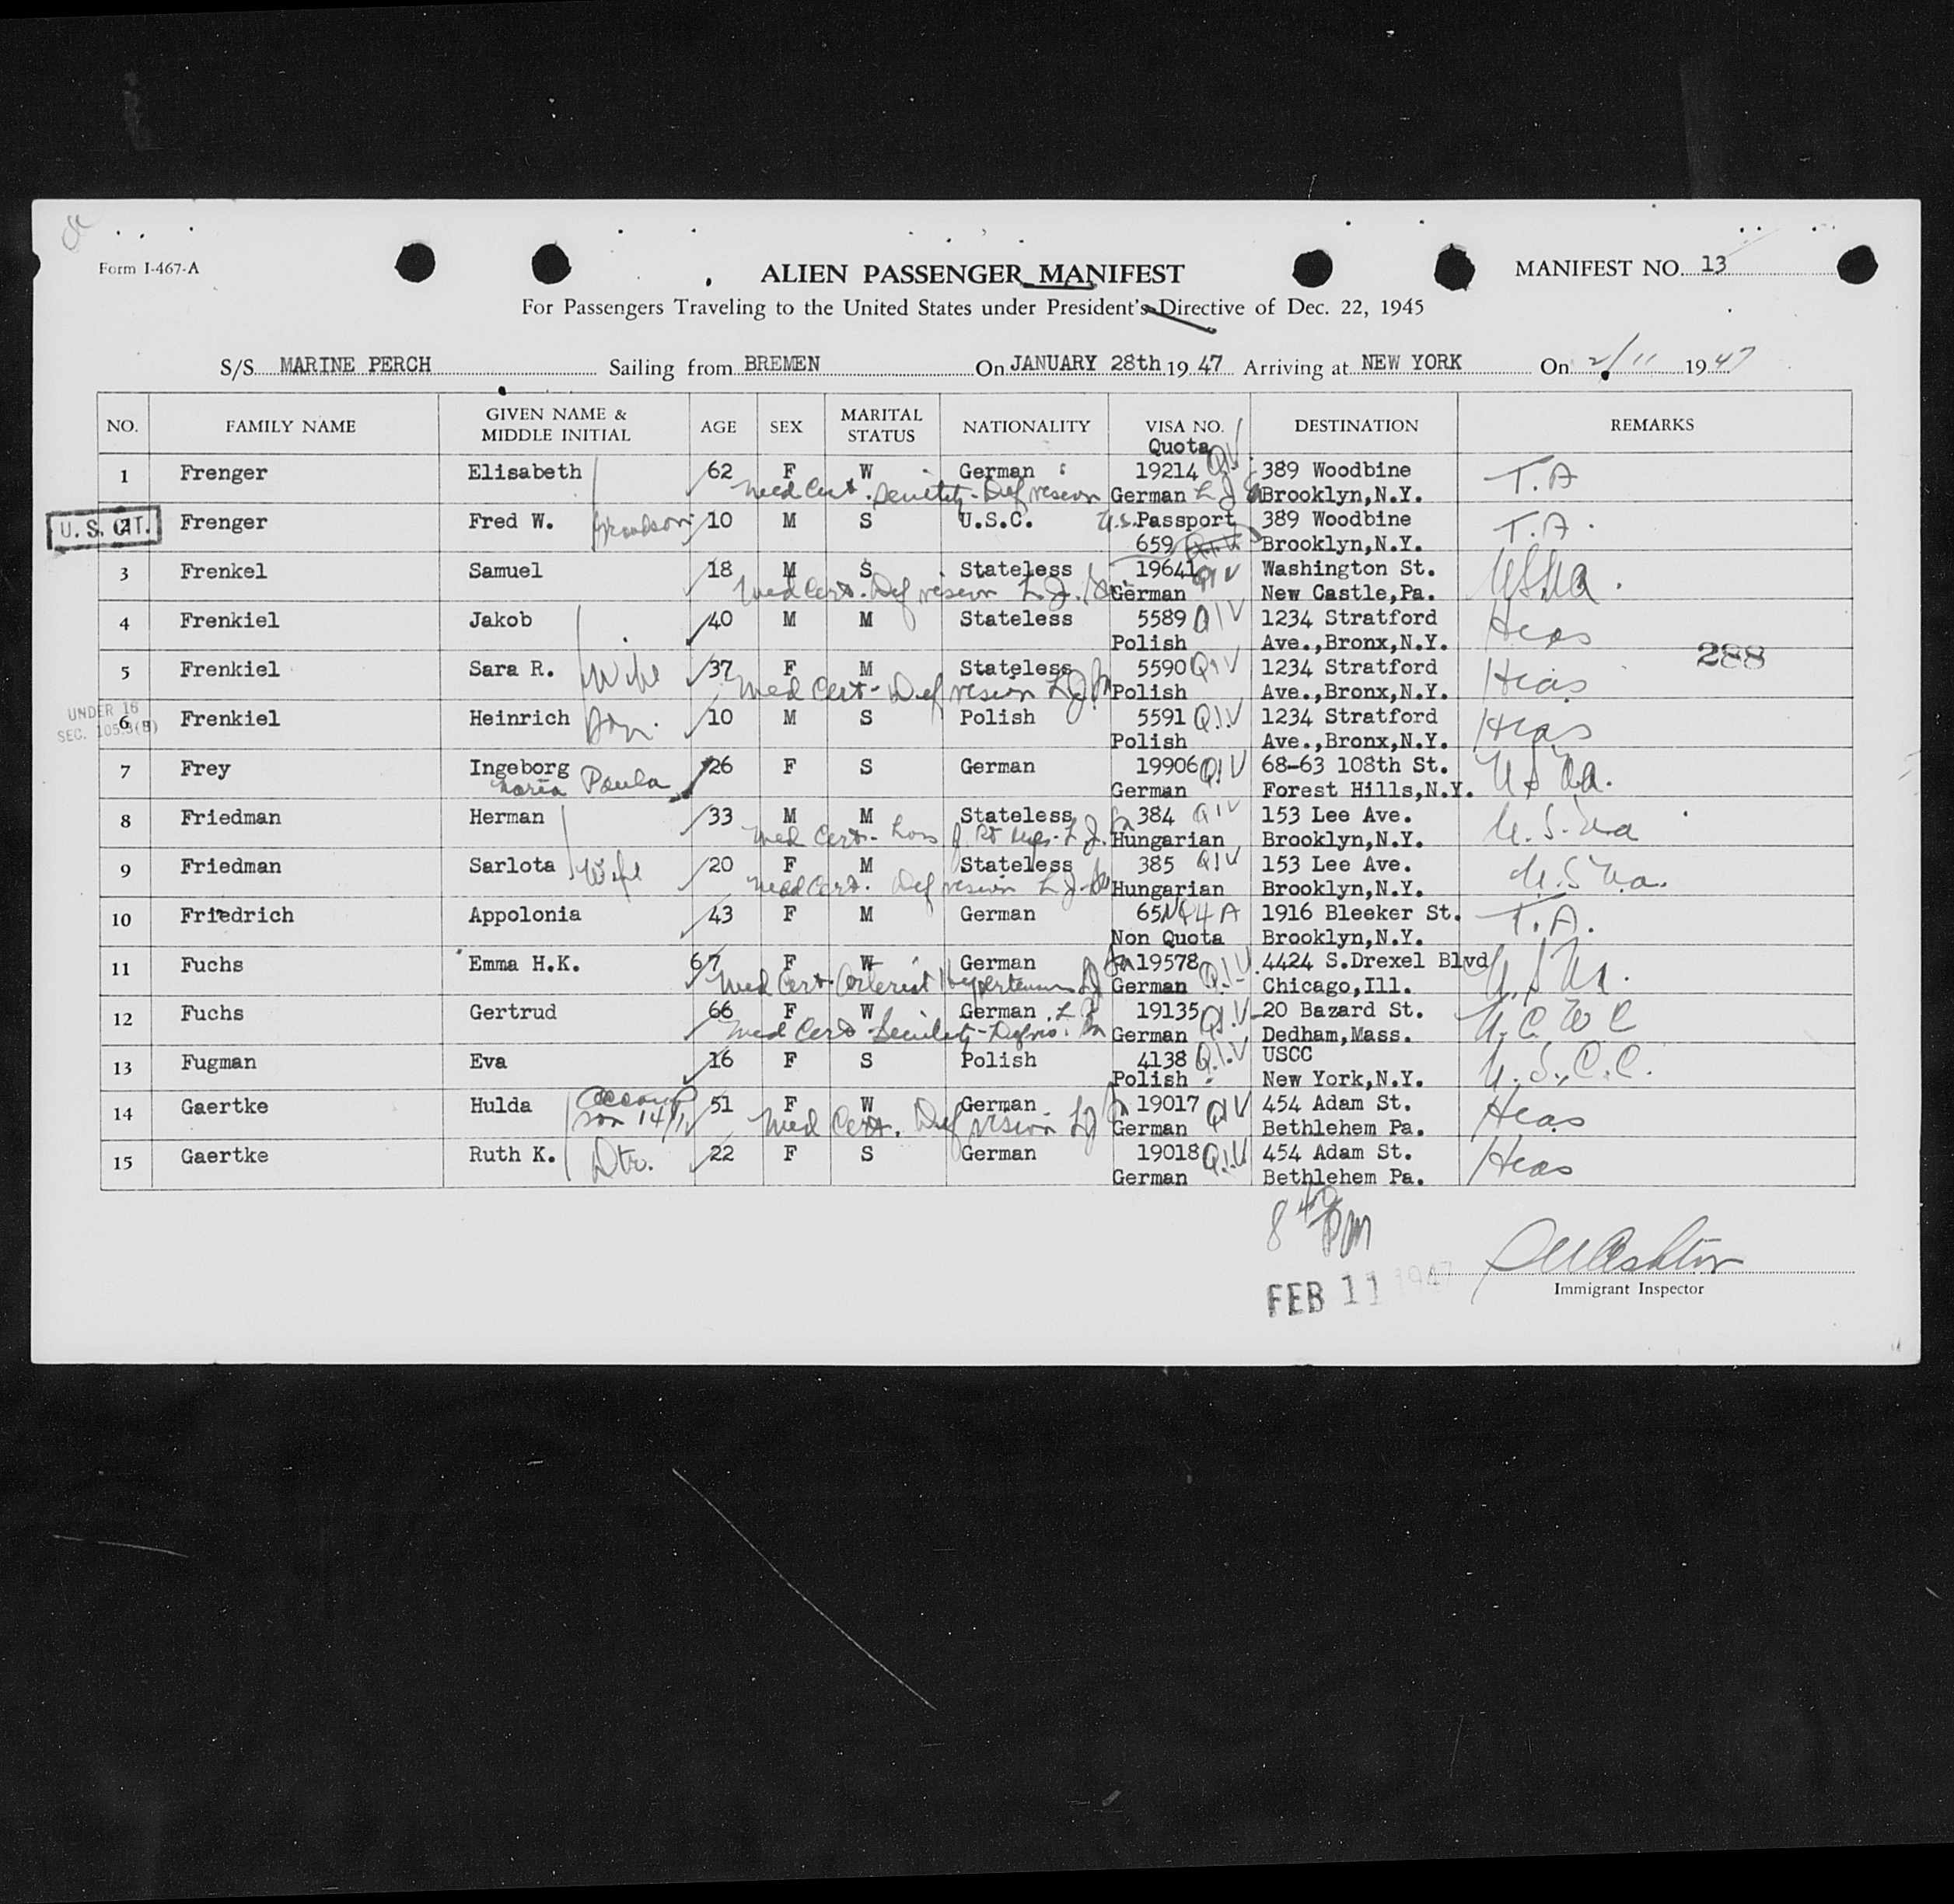 Form I-467-A
ALIEN PASSENGER MANIFEST
MANIFEST NO. 13
For Passengers Traveling to the United States under President's Directive of Dec. 22, 1945
S/S MARINE PERCH Sailing from BREMEN On JANUARY 28th 1947 Arriving at NEW YORK On 2/11 1947
NO. FAMILY NAME GIVEN NAME & MIDDLE INITIAL AGE SEX MARITAL STATUS NATIONALITY VISA NO. Quota DESTINATION REMARKS
1 Frenger Elisabeth 62 F W German 19214 QIV 389 Woodbine T.A
Med Cert. Senility - Def vision German Brooklyn,N.Y.
U.S. CIT. 2 Frenger Fred W. grandson 10 M S U.S.C. U.S. Passport 389 Woodbine T.A.
659 Brooklyn,N.Y.
3 Frenkel Samuel 18 M S Stateless 19641 QIV Washington St. USNA.
Med Cert. Def vision German New Castle,Pa.
4 Frenkiel Jakob 40 M M Stateless 5589 QIV 1234 Stratford Hias
Polish Ave.,Bronx,N.Y.
288
5 Frenkiel Sara R. Wife 37 F M Stateless 5590 QIV 1234 Stratford Hias
Med Cert - Def vision Polish Ave.,Bronx,N.Y.
UNDER 16
SEC. 105.3(B)
6 Frenkiel Heinrich Son. 10 M S Polish 5591 QIV 1234 Stratford Hias
Polish Ave.,Bronx,N.Y.
7 Frey Ingeborg 26 F S German 19906 QIV 68-63 108th St. USNA.
Maria Paula German Forest Hills,N.Y.
8 Friedman Herman 33 M M Stateless 384 QIV 153 Lee Ave. U.S.Na
Med Cert - Hungarian Brooklyn,N.Y.
9 Friedman Sarlota Wife 20 F M Stateless 385 QIV 153 Lee Ave. U.S Na.
Med Cert. Def vision Hungarian Brooklyn,N.Y.
10 Friedrich Appolonia 43 F M German 65 NQ4A 1916 Bleeker St. T.A.
Non Quota Brooklyn,N.Y.
11 Fuchs Emma H.K. 67 F W German 19578 Q.I.V 4424 S.Drexel Blvd
Med Cert. Hypertension German Chicago,Ill.
12 Fuchs Gertrud 66 F W German 19135 QIV 20 Bazard St. U.C.W.C
Med Cert Senility - German Dedham,Mass.
13 Fugman Eva 16 F S Polish 4138 Q.I.V USCC U.S.C.C.
Polish New York,N.Y.
14 Gaertke Hulda Accomp son 14/1 51 F W German 19017 QIV 454 Adam St. Hias
Med Cert. Def vision German Bethlehem Pa.
15 Gaertke Ruth K. Dtr. 22 F S German 19018 Q.I.V 454 Adam St. Hias
German Bethlehem Pa.
8 40 PM
FEB 11 1947
Immigrant Inspector